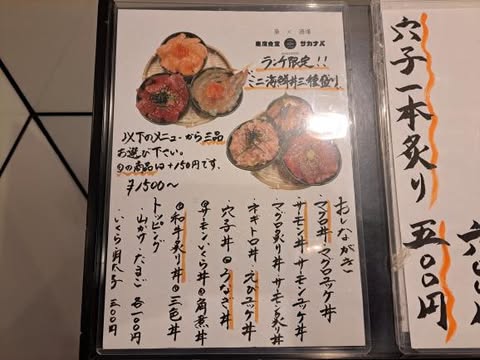 魚 × 酒場
東席食堂 サカナバ
ランチ限定!!
ミニ海鮮丼三種盛り
以下のメニューから三品
お選び下さい。
の商品は+150円です。
¥1500〜
おしながき
・マグロ丼・マグロユッケ丼
・サーモン丼・サーモンユッケ丼
・マグロ炙り丼・サーモン炙り丼
・ネギトロ丼・えびユッケ丼
・穴子丼 うなぎ丼
サーモンいくら丼 角煮丼
和牛炙り丼 三色丼
トッピング
・山かけ・たまご 各100円
・いくら・明太子 三00円
穴子一本炙り 五00円